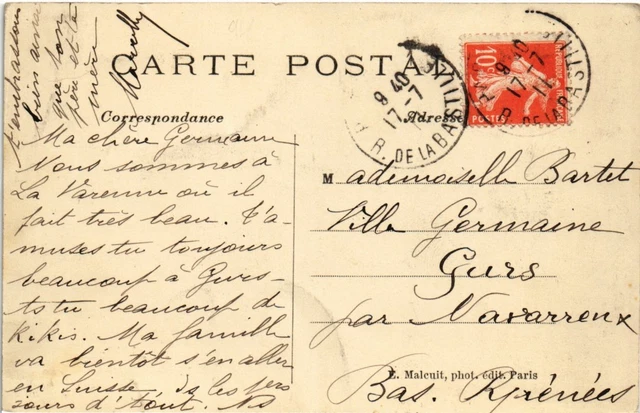 CARTE POSTALE
Correspondance
Adresse
Ma chère Germaine
Nous sommes à
La Varenne où il
fait très beau. T'a-
muses tu toujours
beaucoup à Gurs
tu beaucoup de
Kikis. Ma famille
va bientôt s'en aller
en Suisse les
jours d'Août. Ns
t'embrassons
bien ainsi
que ton
père et ta
mère
Mademoiselle Bartet
Villa Germaine
Gurs
par Navarrenx
Bas. Pyrénées
E. Malcuit, phot. édit. Paris
9 40
17-7
R. DE LA BASTILLE
10c
POSTES
9 40
17-7
11
R. DE LA BASTILLE